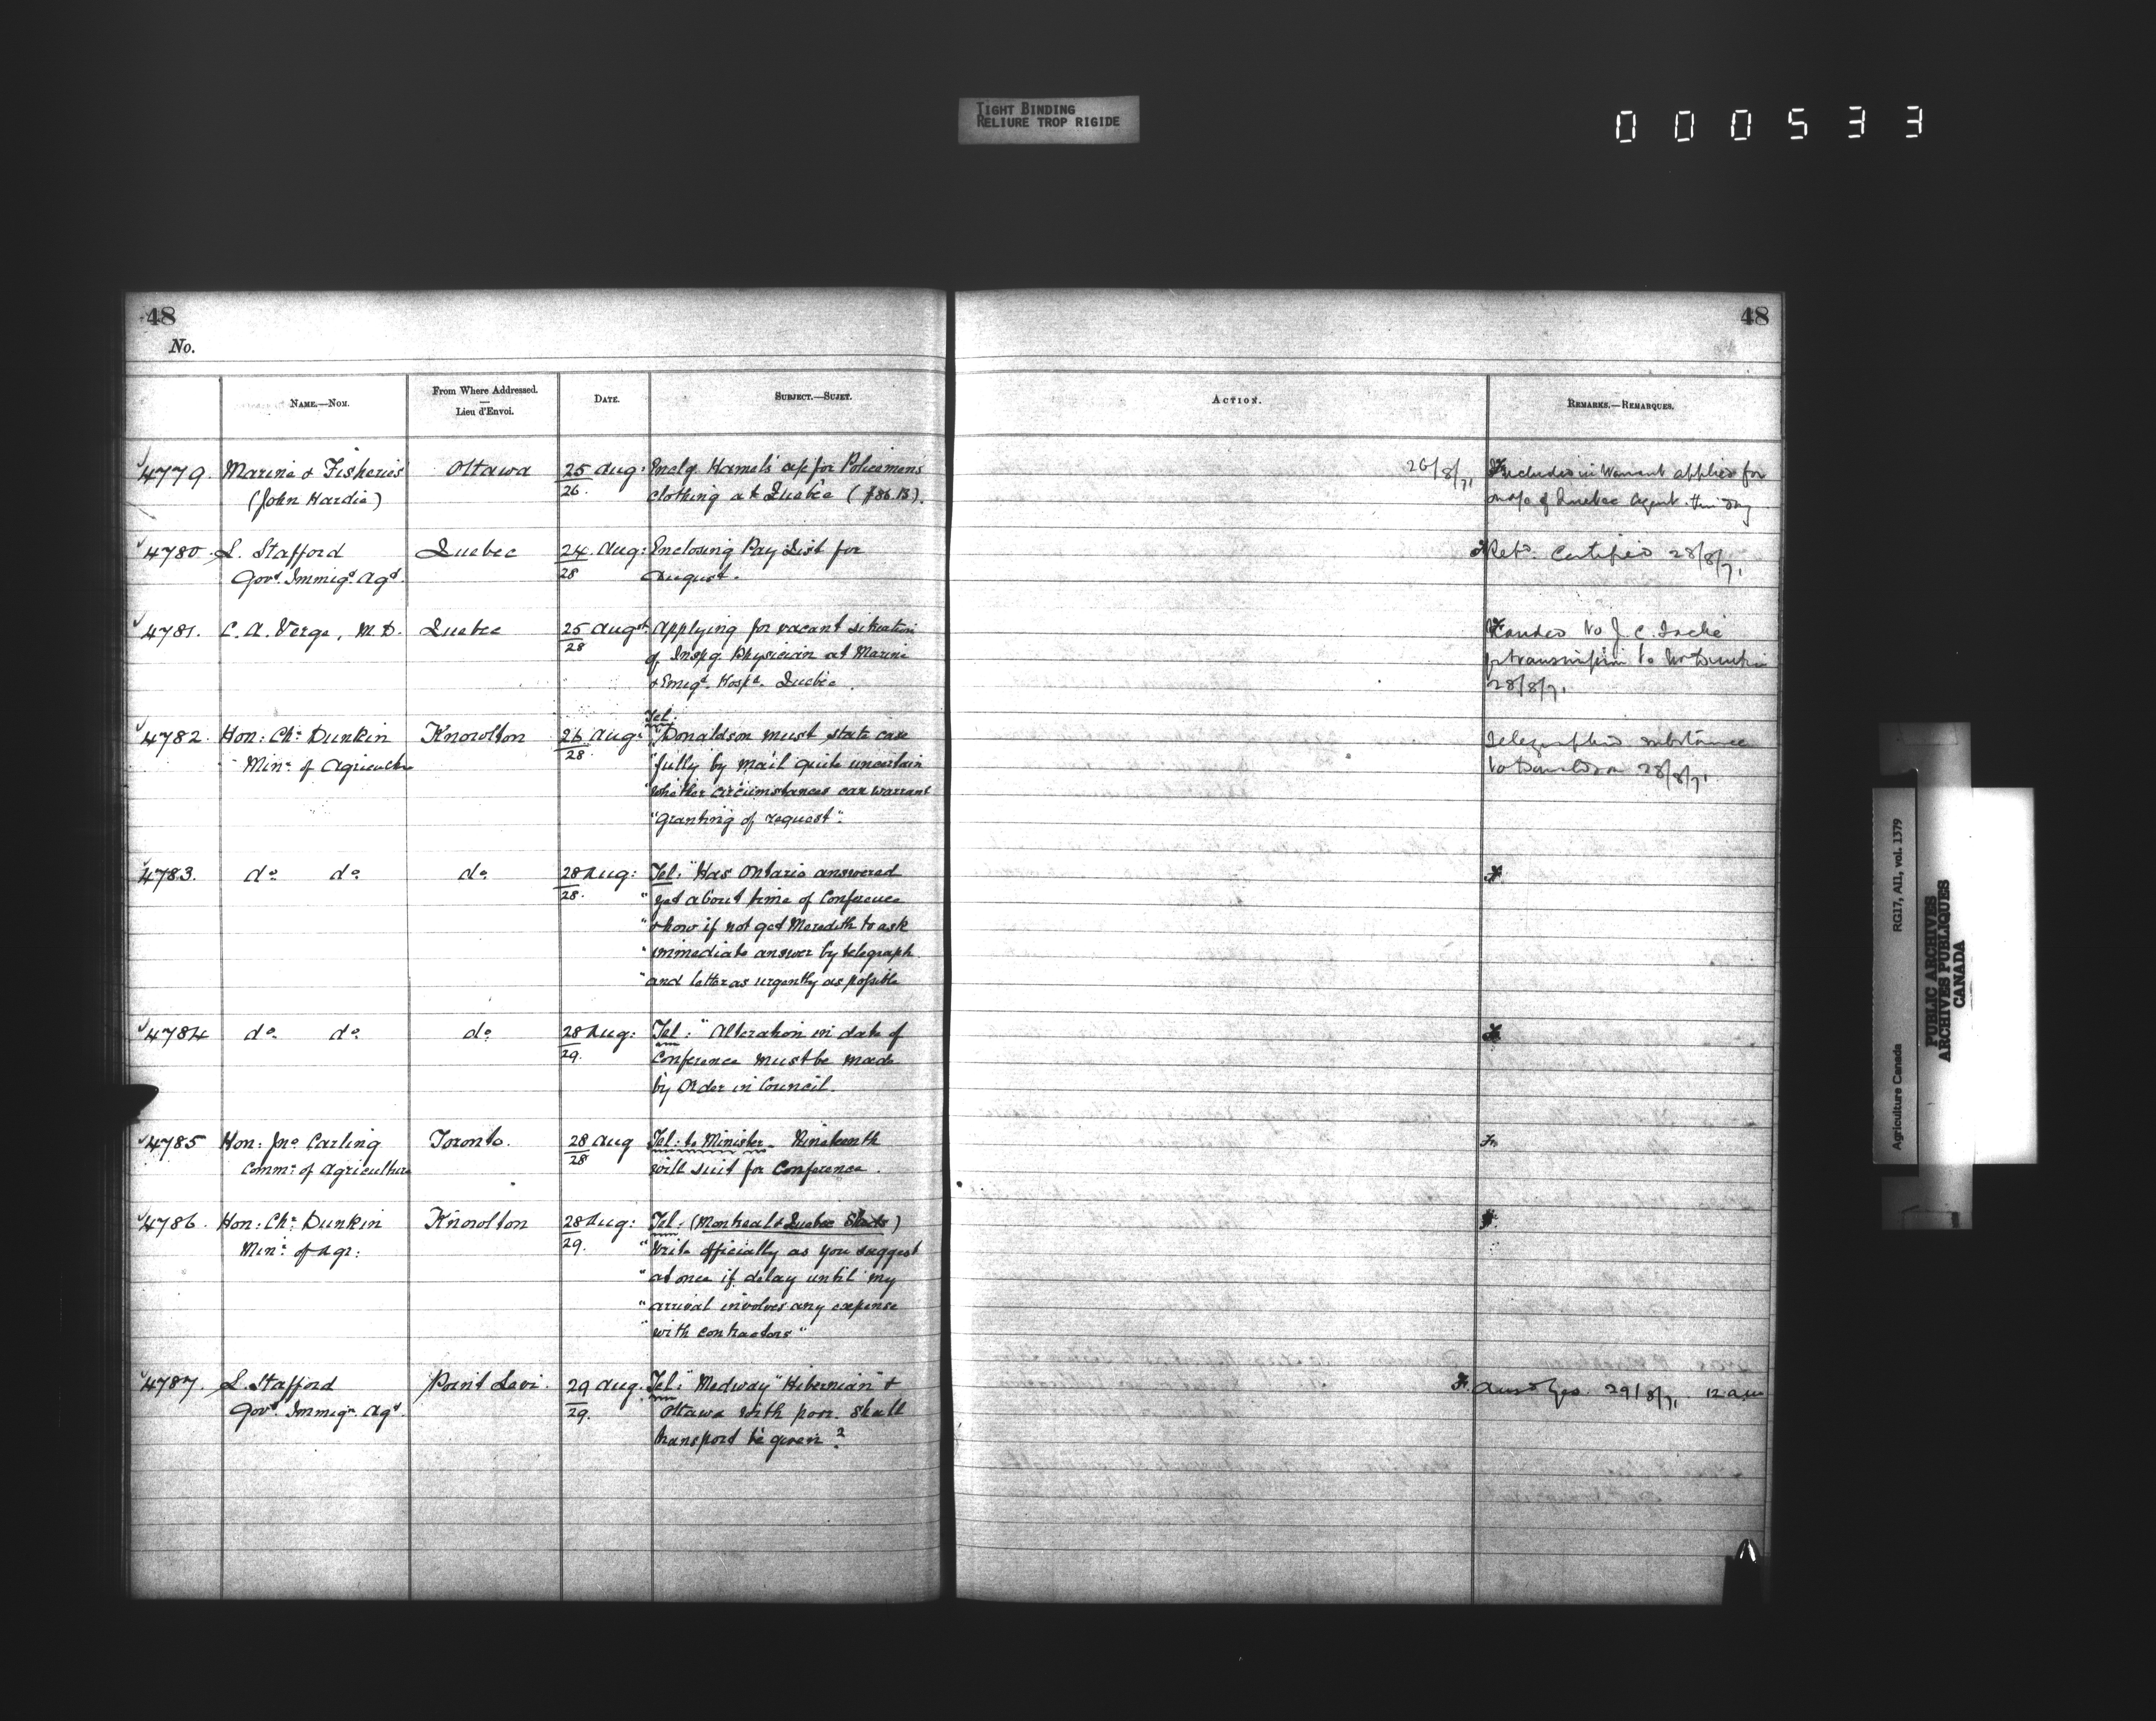 TIGHT BINDING
RELIURE TROP RIGIDE
000533
48
48
No.
NAME.—NOM.
From Where Addressed.
—
Lieu d'Envoi.
DATE.
SUBJECT.—SUJET.
ACTION.
REMARKS.—REMARQUES.
4779. Marine & Fisheries Ottawa 25 Aug: Enclg. Hamel's a/c for Policemens
(John Hardie) 26. clothing at Quebec ($86.13).
26/8/71 Included in Warrant applied for
on a/c of Quebec Agent this day
4780. L. Stafford Quebec 24 Aug: Enclosing Pay List for
Govt. Immigt. Agt. 28 August.
Retd. Certified 28/8/71
4781. C. A. Verge, M.D. Quebec 25 Augt. Applying for vacant situation
28 of Inspg. Physician at Marine
& Emigt. Hospl. Quebec.
Handed to J. C. Taché
for transmission to Mr Dunkin
28/8/71
Tel:
4782. Hon: Chs. Dunkin Knowlton 26 Aug: "Donaldson must state case
Minr. of Agriculture 28 "fully by mail quite uncertain
"whether circumstances can warrant
"granting of request".
Telegraphed substance
to Donaldson 28/8/71
4783. do. do. do. 28 Aug: Tel: "Has Ontario answered
28. "yet about time of Conference
"& how if not get Meredith to ask
"immediate answer by telegraph
"and letter as urgently as possible
4784 do. do. do. 28 Aug: Tel: "Alteration in date of
29. Conference must be made
by Order in Council.
4785 Hon: Jno. Carling Toronto. 28 Aug Tel: to Minister. Nineteenth
Commr. of Agriculture 28 will suit for Conference.
4786. Hon: Chs. Dunkin Knowlton 28 Aug: Tel: (Montreal & Quebec Sheds)
Minr. of Agr: 29. "Write officially as you suggest
"at once if delay until my
"arrival involves any expense
"with contractors"
4787. L. Stafford Point Levi 29 Aug. Tel: "Medway" "Hibernian" &
Govt. Immigr. Agt. 29. Ottawa with poor. Shall
transport be given?
Ansd Yes. 29/8/71 12 a.m.
Agriculture Canada RG17, AII, vol. 1379
PUBLIC ARCHIVES
ARCHIVES PUBLIQUES
CANADA